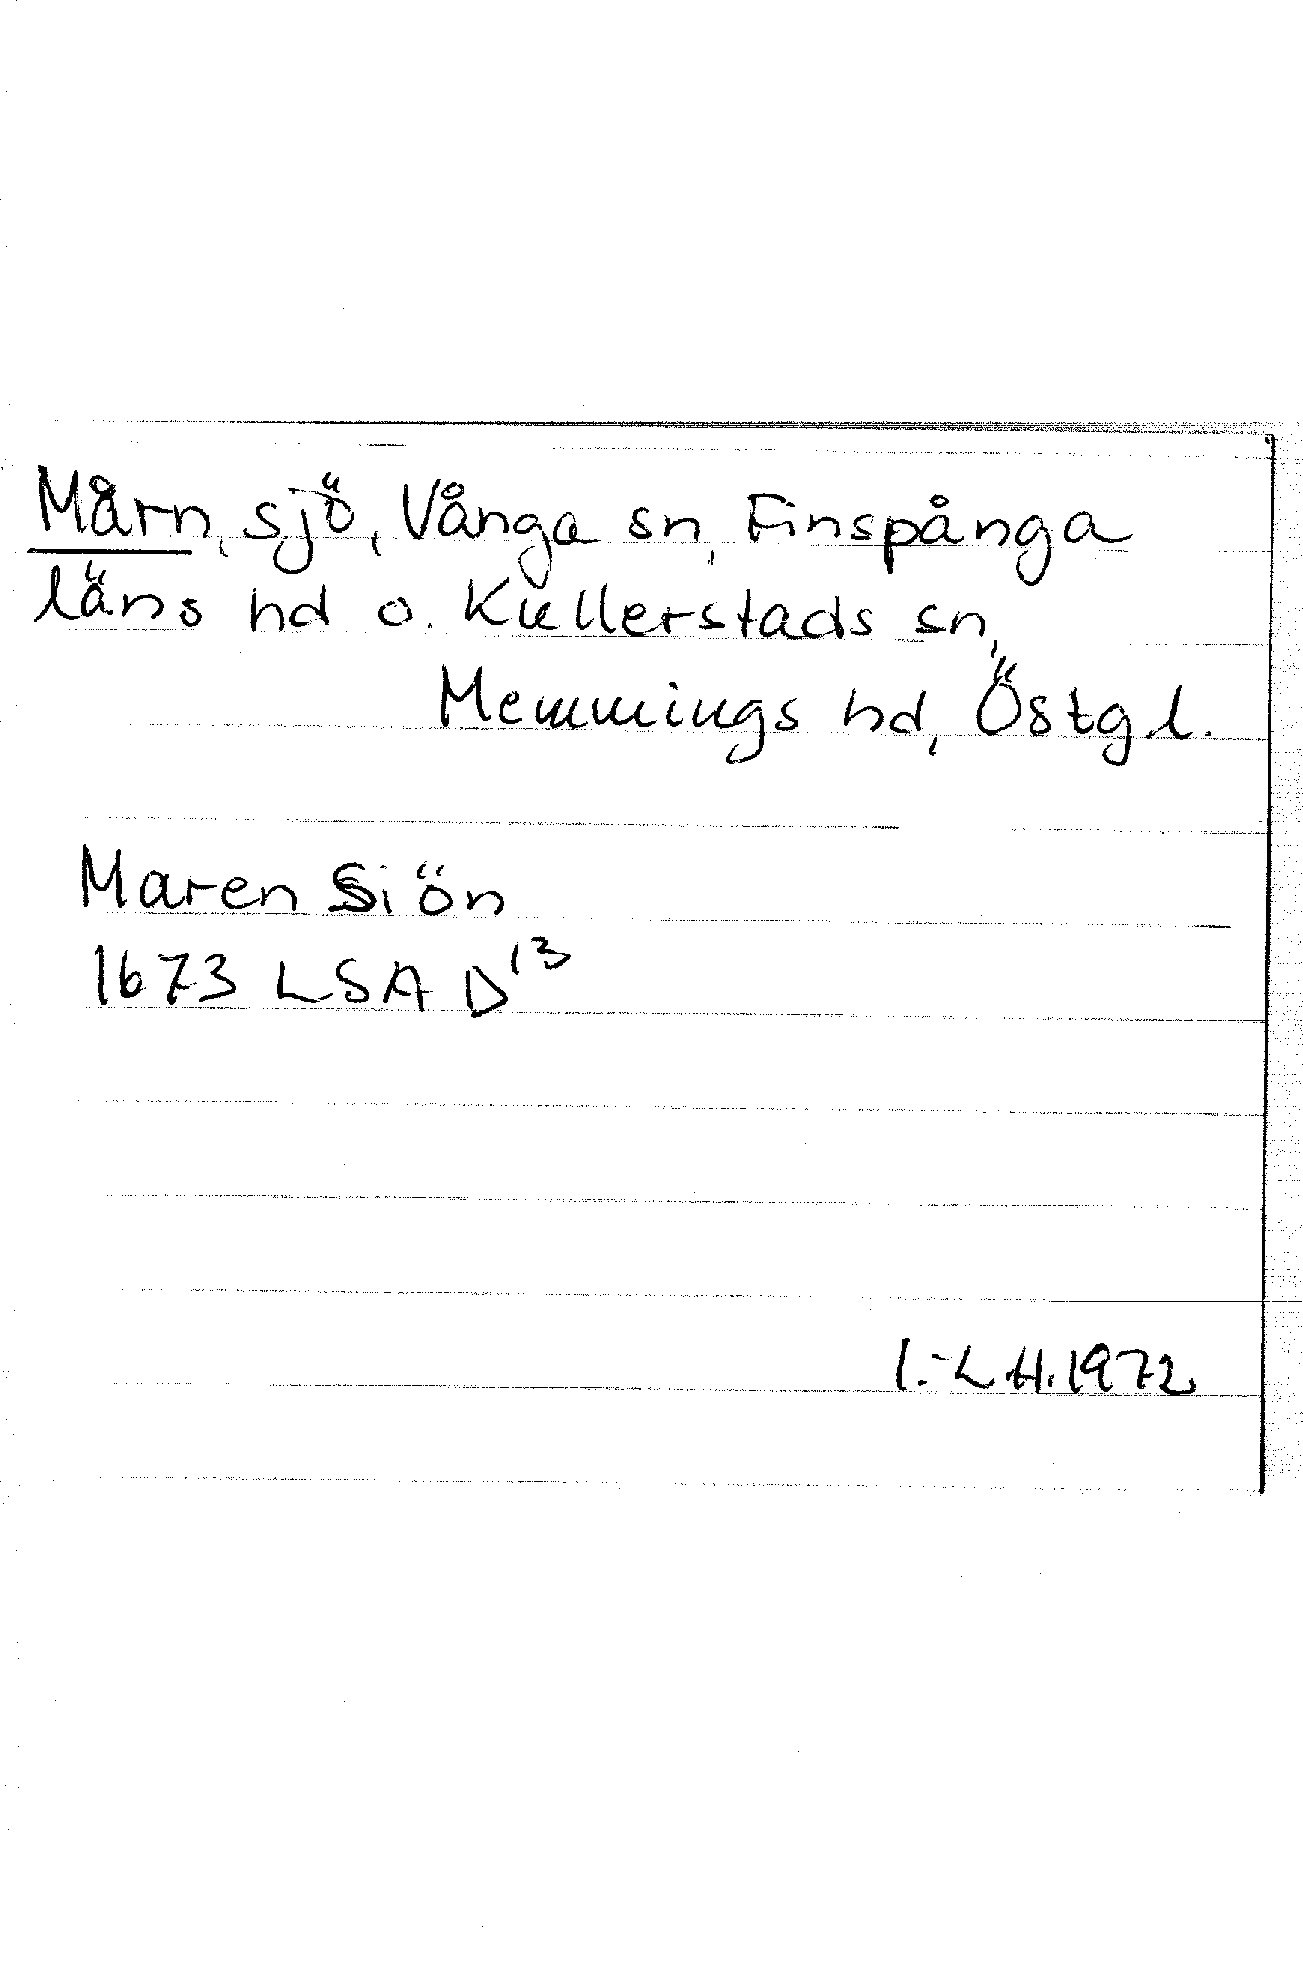 Mårn, sjö, Vånga sn, Finspånga
läns hd o. Kullerstads sn,
Memmings hd, Östg.l.
Maren Siön
1673 LSA D¹³
I.-L H. 1972